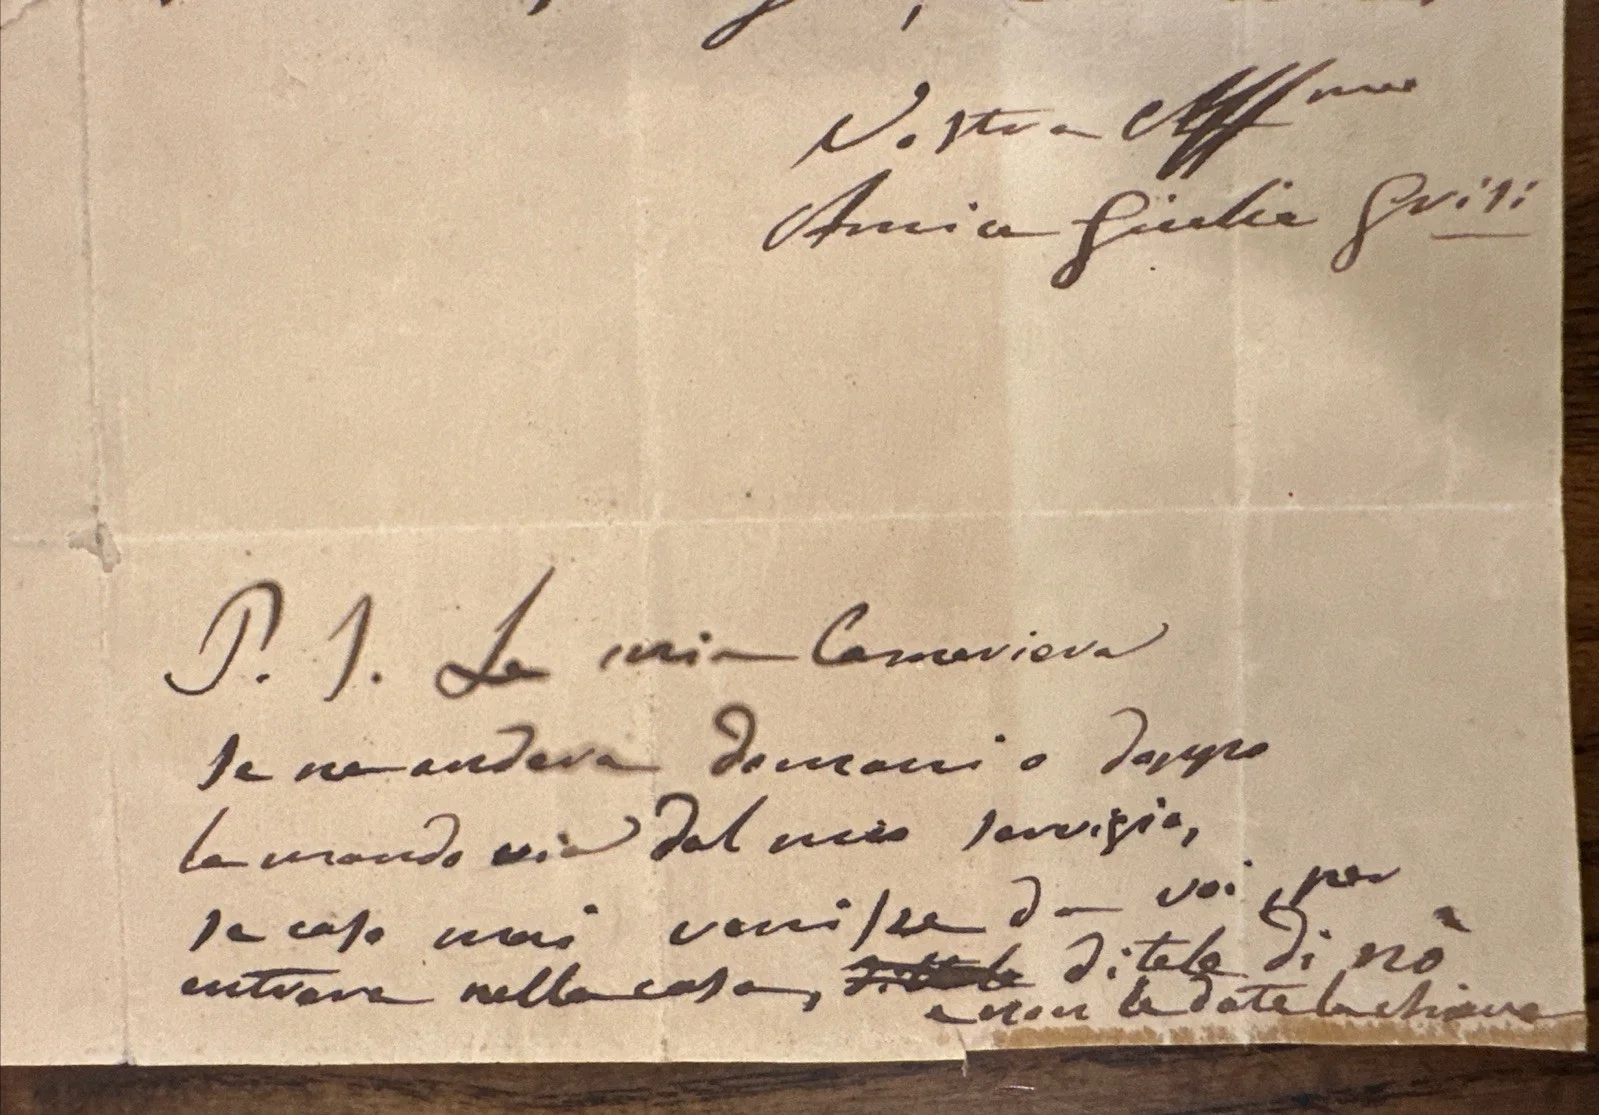 Vostra Aff.ma
Amica Giulia Grisi
P. S. La mia Cameriera
se ne andera domani o doppo
la mando via dal mio servizio,
se caso mai venisse da voi, per
entrare nella casa, ditele di nò
e non le date la chiave